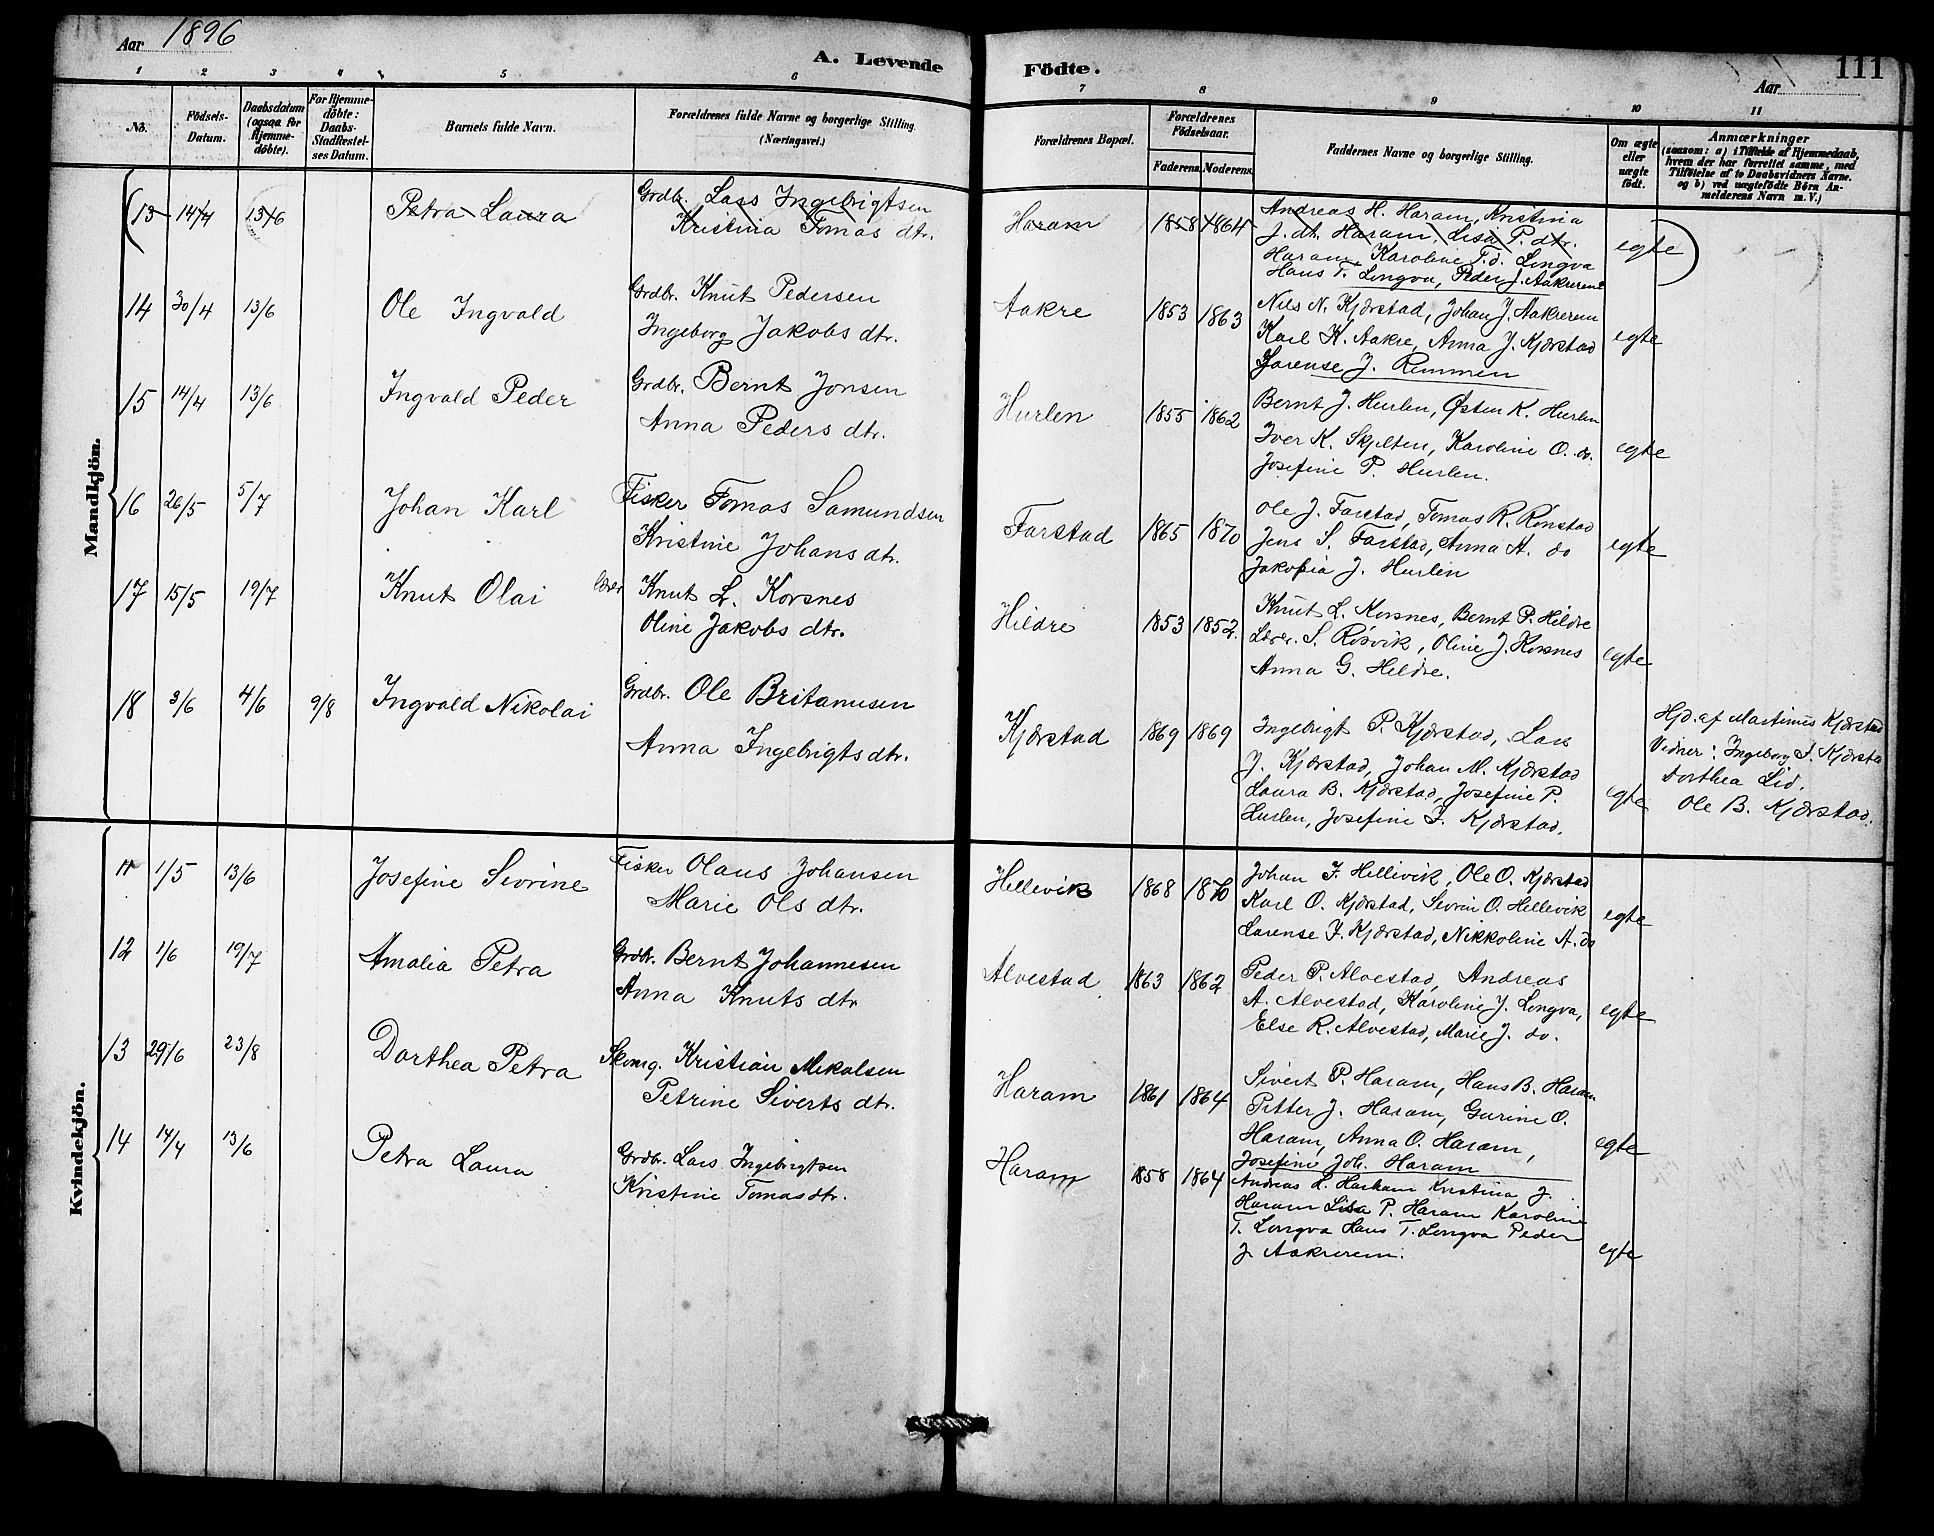 Aar 1896
A. Levende Födte.
Aar
111
1 2 3 4 5 6 7 8 9 10 11
No.
Födsels-Datum.
Daabsdatum (ogsaa for Hjemme-döbte).
For Hjemme-döbte: Daabs-Stadfæstel-ses Datum.
Barnets fulde Navn.
Forældrenes fulde Navne og borgerlige Stilling. (Næringsvei.)
Forældrenes Bopæl.
Forældrenes Födselsaar.
Faderens. Moderens.
Faddernes Navne og borgerlige Stilling.
Om ægte eller uægte födt.
Anmærkninger
(saasom: a) i Tilfælde af Hjemmedaab,
hvem der har forrettet samme, med
Tilföielse af to Daabsvidners Navne.
og b) ved uægtefödte Börn An-
melderens Navn m. V.)
Mandkjön.
(13 14/4 13/6 Petra Laura Grdbr. Lars Ingebrigtsen
Kristina Tomas dtr. Haram 1858 1864
Andreas H. Haram, Kristina
J. dtr. Haram, Lisa P. dtr.
Haram, Karoline T. d. Longva
Hans T. Longva, Peder J. Aakrerem
egte )
14 30/4 13/6 Ole Ingvald Grdbr. Knut Pedersen
Ingeborg Jakobs dtr. Aakre 1853 1863
Nils N. Kjærstad, Johan J. Aakrerem
Karl K. Aakre, Anna J. Kjærstad
Larense J. Remmen
egte
15 14/4 13/6 Ingvald Peder Grdbr. Bernt Jonsen
Anna Peders dtr. Hurlen 1855 1862
Bernt J. Hurlen, Østen K. Hurlen
Iver K. Skjelten, Karoline O. do.
Josefine P. Hurlen.
egte
16 26/5 5/7 Johan Karl Fisker Tomas Samundsen
Kristine Johans dtr. Farstad 1865 1870
Ole J. Farstad, Tomas R. Rønstad
Jens S. Farstad, Anna A. do
Jakobia J. Hurlen
egte
17 15/5 19/7 Knut Olai Lærer Knut L. Korsnes
Oline Jakobs dtr. Hildre 1853 1852.
Knut L. Korsnes, Bernt P. Hildre
Lærer. S. Røsvik, Oline J. Korsnes
Anna G. Hildre.
egte
18 3/6 4/6 9/8 Ingvald Nikolai Grdbr. Ole Britanusen
Anna Ingebrigts dtr. Kjærstad 1869 1869
Ingebrigt P. Kjærstad, Lars
J. Kjærstad, Johan M. Kjærstad
Laura B. Kjærstad, Josefine P.
Hurlen, Josefine I. Kjærstad.
egte
Hjd. af Martinus Kjærstad
Vidner: Ingeborg I. Kjærstad
Dorthea Lid.
Ole B. Kjærstad.
Kvindekjön.
11 1/5 13/6 Josefine Sevrine Fisker Olaus Johansen
Marie Ols dtr. Hellevik 1868 1870
Johan J. Hellevik, Ole O. Kjærstad
Karl O. Kjærstad, Sevrin O. Hellevik
Larense J. Kjærstad, Nikkoline A. do
egte
12 1/6 19/7 Amalia Petra Grdbr. Bernt Johannesen
Anna Knuts dtr Alvestad 1863 1862
Peder P. Alvestad, Andreas
A. Alvestad, Karoline J. Longva,
Else R. Alvestad, Marie J. do.
egte
13 29/6 23/8 Dorthea Petra Skomg. Kristian Mekalsen
Petrine Siverts dtr. Haram 1861 1864
Sivert P. Haram, Hans B. Haram
Petter J. Haram, Gurine O.
Haram, Anna O. Haram,
Josefine Joh. Haram
egte
14 14/4 13/6 Petra Laura Grdbr. Lars Ingebrigtsen
Kristine Tomasdtr. Haram 1858 1864
Andreas L. Harham Kristina J.
Haram Lisa P. Haram Karoline
T. Longva Hans T. Longva Peder
J. Aakrerem.
egte